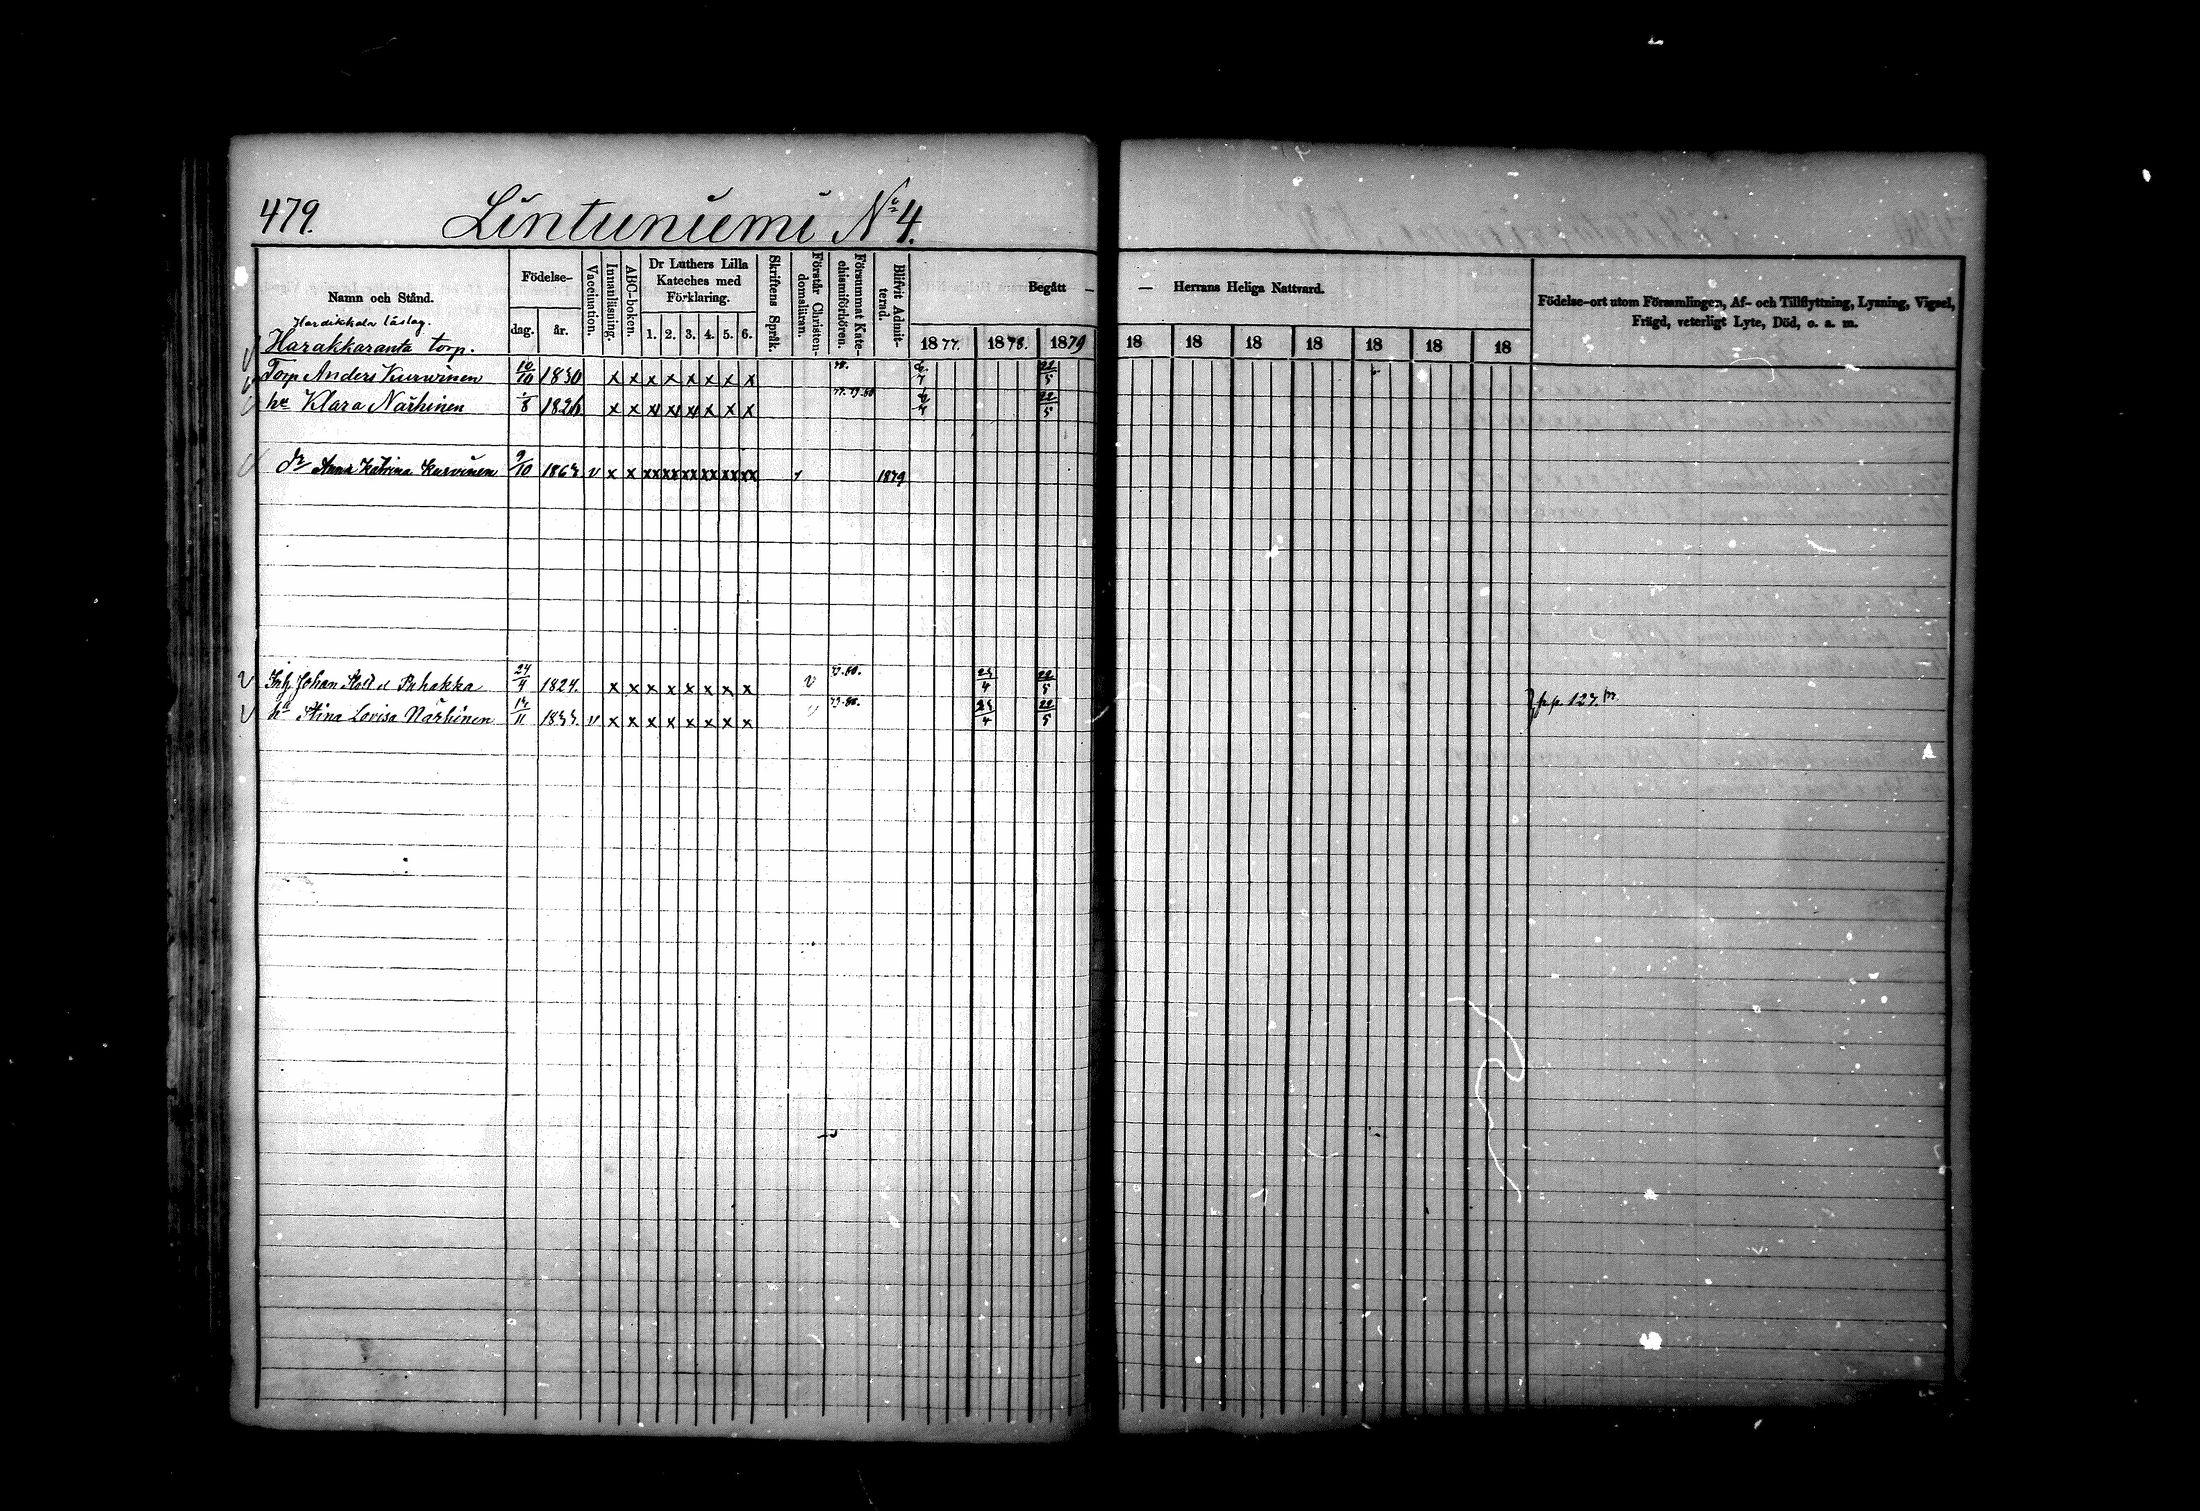 479.
Lintuniemi No 4.
Namn och Stånd.
Födelse-
dag.
år.
Vaccination.
Innanläsning.
ABC-boken.
Dr Luthers Lilla
Kateches med
Förklaring.
1. 2. 3. 4. 5. 6.
Skriftens Språk.
Förstår Christen-
domsläran.
Försummat Kate-
chismiförhören.
Blifvit Admit-
terad.
Begått —
1877. 1878. 1879
— Herrans Heliga Nattvard.
18 18 18 18 18 18 18
Födelse-ort utom Församlingen, Af- och Tillflyttning, Lysning, Vigsel,
Frägd, veterligt Lyte, Död, o. a. m.
läslag.
Harakkaranta torp.
Torp Anders Kurvinen 10/10 1830 x x x x x x x x 22/5
hu Klara Närhinen /8 1826 x x x x x x x x 77. 79-80 22/5
dr Anna Katrina Kurvinen 9/10 1863. v x x xx xx xx xx xx xx 1879
Johan Puhakka 24/4 1824. x x x x x x x x v 79-80. 23/4 22/5
hu Stina Lovisa Närhinen /11 1833. v x x x x x x x x v 79-80. 23/4 22/5
p.p. 127.